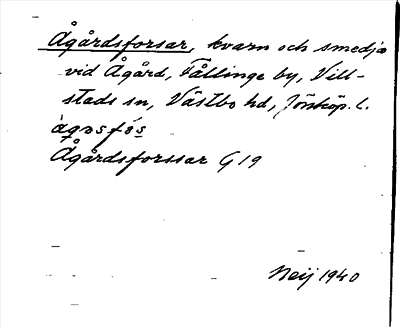 Ågårdsforsar, kvarn och smedja
vid Ågård, Fållinge by, Vill-
stads sn, Västbo hd, Jönköp. l.
Ågårdsforssar G 19
Neij 1940